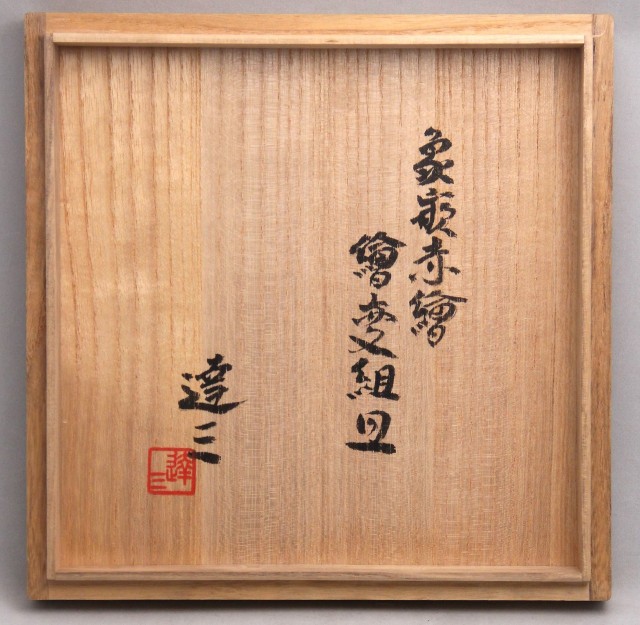 象嵌赤繪
繪変組皿
達三
達三